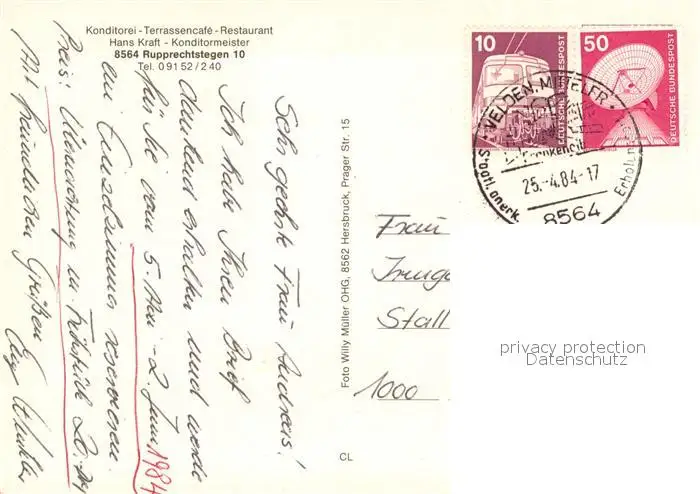 Konditorei - Terrassencafé - Restaurant
Hans Kraft - Konditormeister
8564 Rupprechtstegen 10
Tel. 0 91 52 / 2 40
Sehr geehrte Frau Andreas!
Ich habe Ihren Brief
dankend erhalten und werde
für Sie vom 5. Mai - 2. Juni 1984
ein Einzelzimmer reservieren.
Preis: Übernachtung m. Frühstück 20.-
Mit freundlichen Grüßen
Foto Willy Müller OHG, 8562 Hersbruck, Prager Str. 15
CL
10
DEUTSCHE BUNDESPOST
50
DEUTSCHE BUNDESPOST
VELDEN, MITTELFR
25.-4.84-17
8564
Staatl. anerk. Erhol
Frau
Stall
1000
privacy protection
Datenschutz